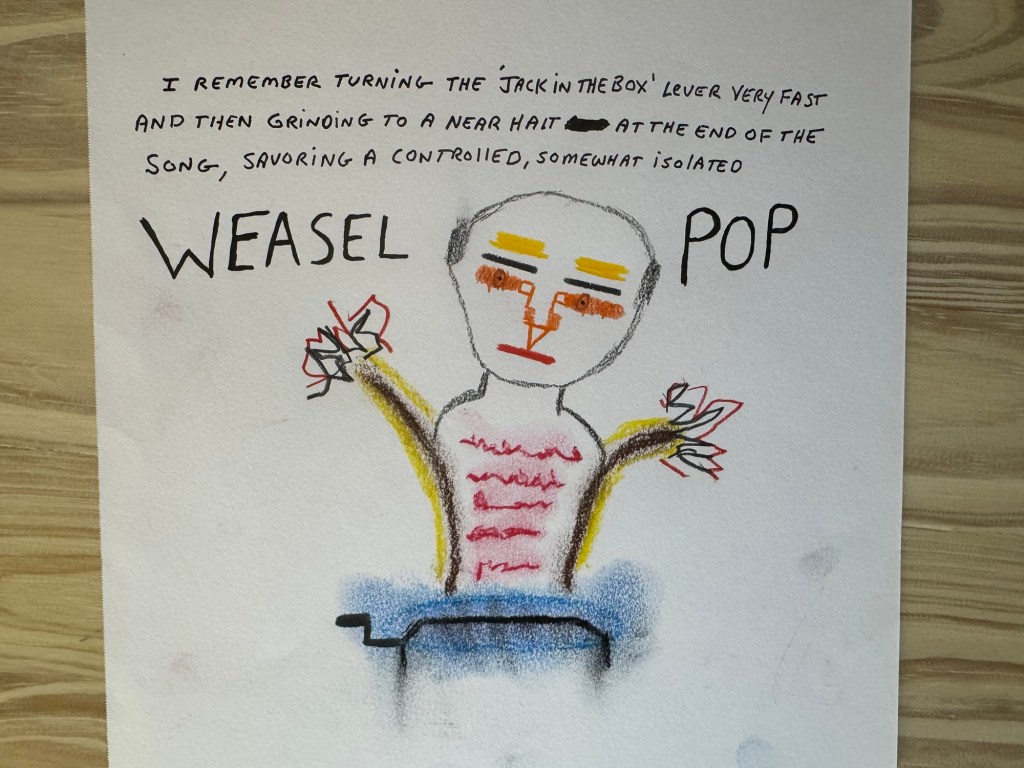 I REMEMBER TURNING THE 'JACK IN THE BOX' LEVER VERY FAST
AND THEN GRINDING TO A NEAR HALT AT THE END OF THE
SONG, SAVORING A CONTROLLED, SOMEWHAT ISOLATED
WEASEL POP